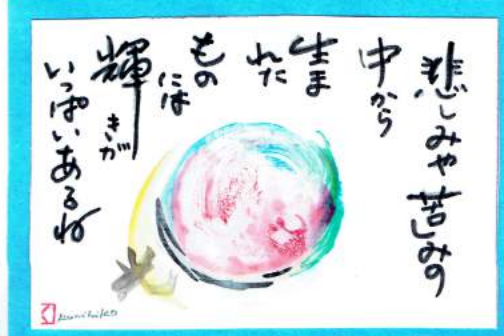 悲しみや苦しみの
中から
生ま
れた
もの
には
輝きが
いっぱいあるね
kunihiko